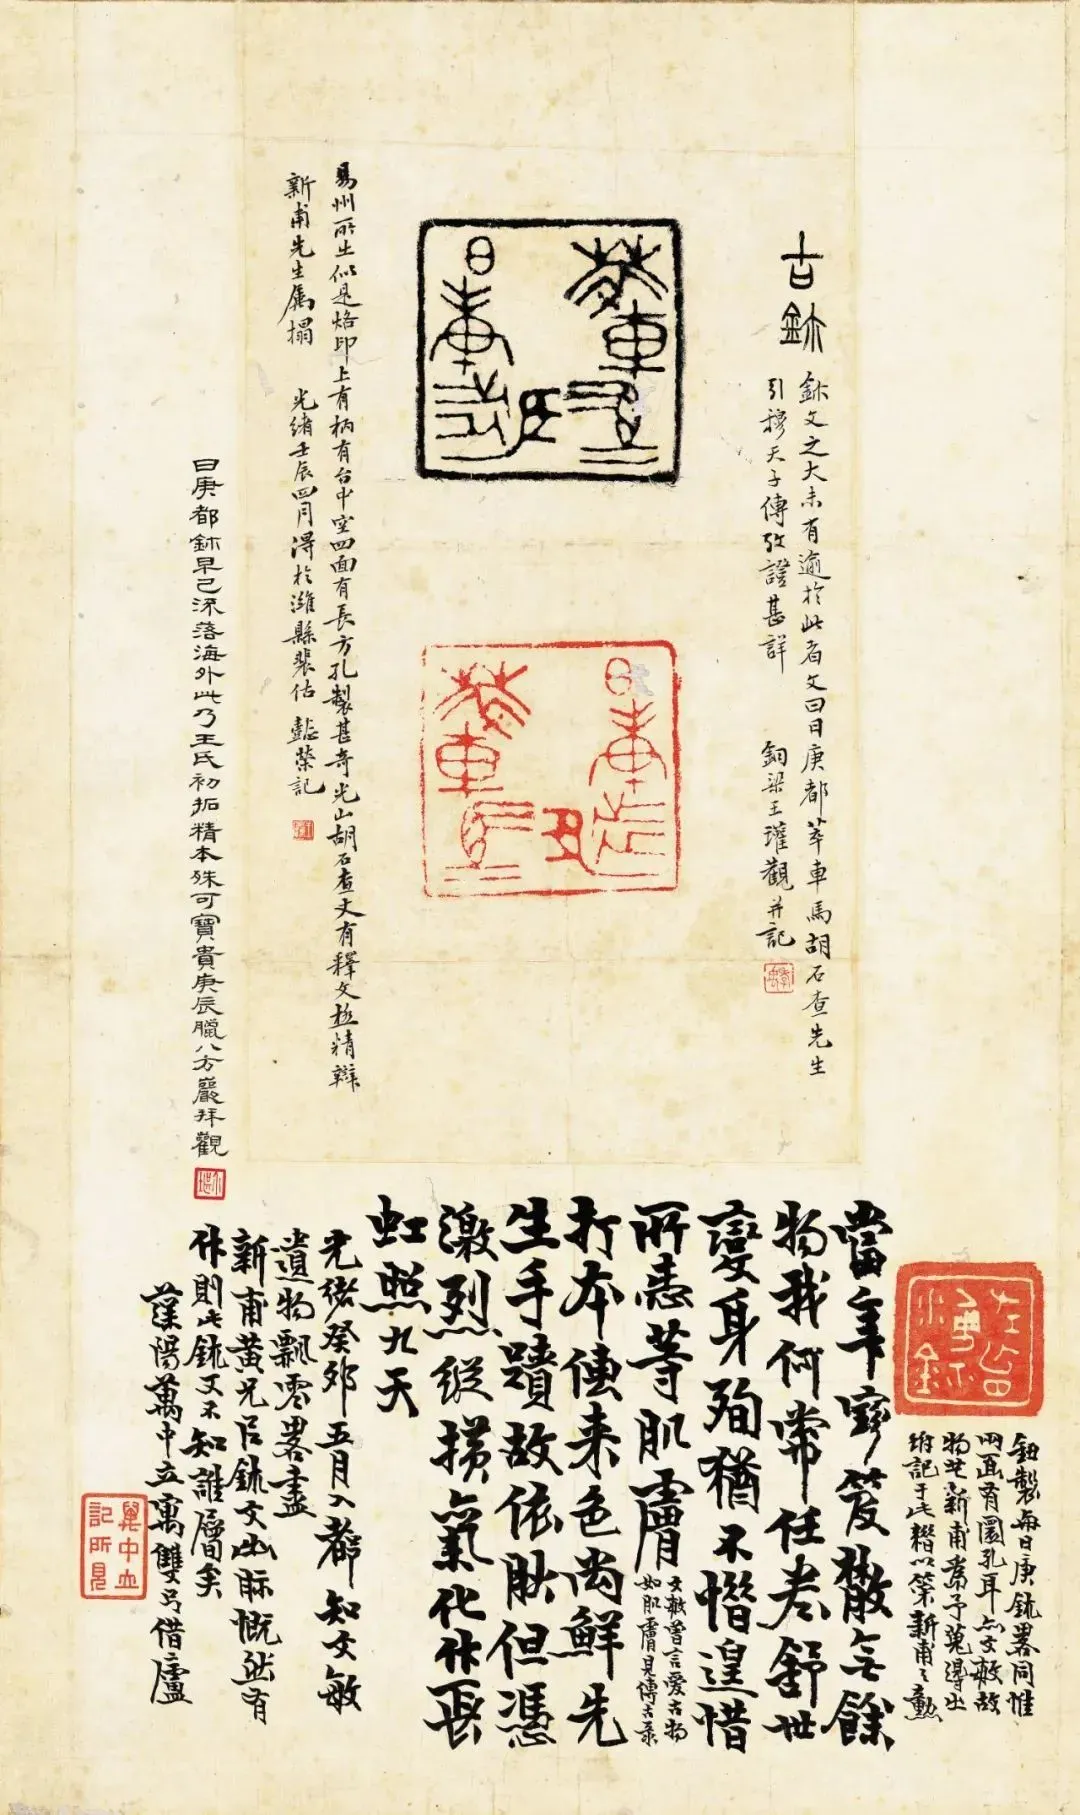 古鉨
鉨文之大未有逾於此者文曰日庚都萃車馬胡石查先生
引穆天子傳攷證甚詳 銅梁王瓘觀并記
日庚都萃車馬
易州所出似是烙印上有柄有台中空四面有長方孔製甚奇光山胡石查丈有釋文極精辯
新甫先生属搨 光緒壬辰四月得於濰縣裴估 懿榮記
日庚都鉨早已流落海外此乃王氏初拓精本殊可寶貴庚辰臘八方巖拜觀
當年寶笈散無餘
物我何常任卷舒世
變身殉猶不惜遑惜
所愙等肌膚
文敏曾言愛古物
如肌膚見傳古录
打本傳来色尚鮮先
生手蹟故依肰但憑
激烈縱橫氣化作長
虹照九天
光緒癸卯五月入都知文敏
遺物飄零畧盡
新甫黄兄吕鉨文出眎慨然有
作則此鉨又不知誰屬矣
蕅陽萬中立寓雙弓借廬
鈕製與日庚鉨畧同惟
兩面有圜孔耳亦文敏故
物老新甫為予蒐得出
坿記于此
萬中立
記所見